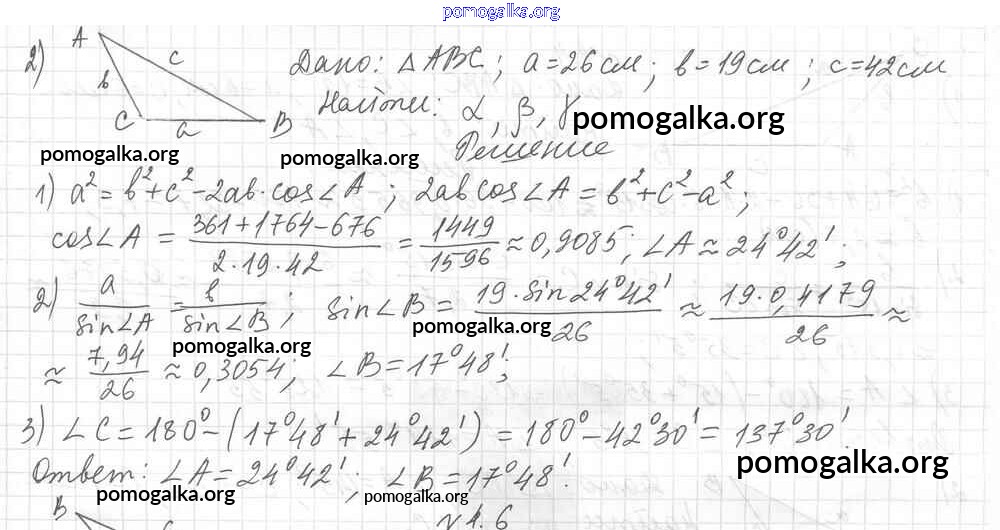 pomogalka.org
2)
A
в
c
C
a
B
Дано: △ABC; a=26см; в=19см; c=42см
Найти: α, β, γ
pomogalka.org
Решение
pomogalka.org
pomogalka.org
1) a² = в²+c²-2aв·cos∠A; 2aвcos∠A = в²+c²-a²;
cos∠A = (361+1764-676)/(2·19·42) = 1449/1596 ≈ 0,9085; ∠A ≈ 24°42';
2) a/sin∠A = в/sin∠B; sin∠B = (19·sin24°42')/26 ≈ (19·0,4179)/26 ≈
pomogalka.org
pomogalka.org
≈ 7,94/26 ≈ 0,3054; ∠B=17°48';
3) ∠C=180°-(17°48'+24°42') = 180°-42°30' = 137°30'.
Ответ: ∠A=24°42'; ∠B=17°48'.
pomogalka.org
pomogalka.org
pomogalka.org
B
c